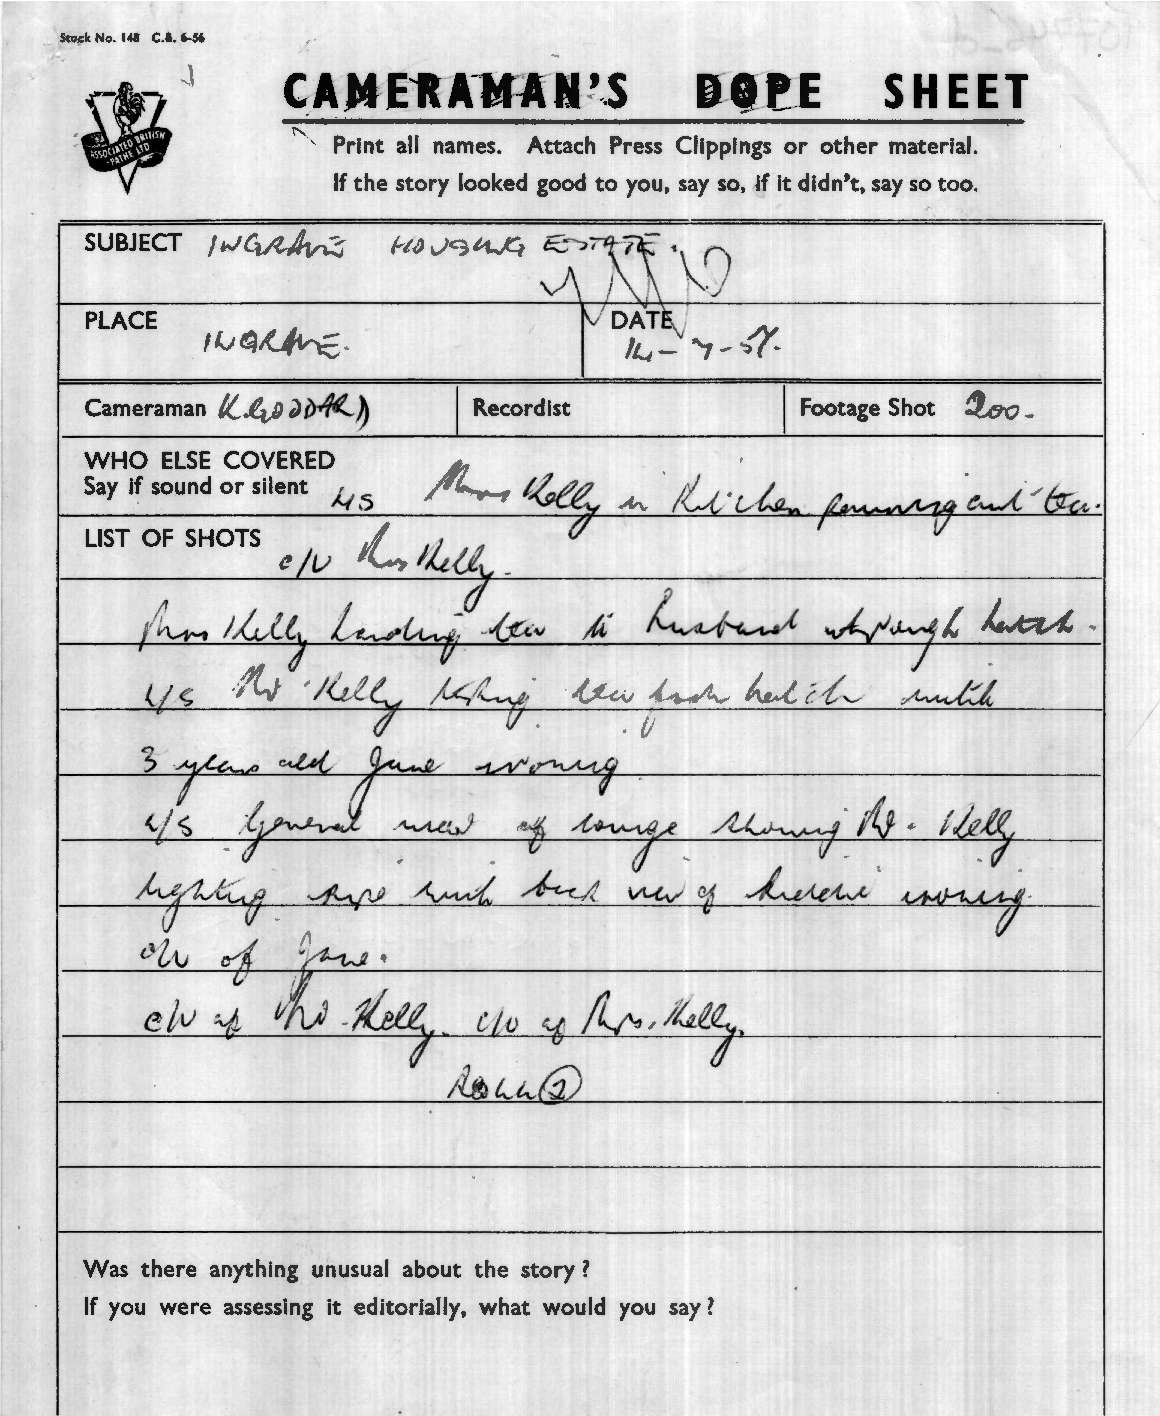 Stock No. 148 C.B. 6-56
CAMERAMAN'S DOPE SHEET
ASSOCIATED BRITISH
PATHE LTD
Print all names. Attach Press Clippings or other material.
If the story looked good to you, say so, if it didn't, say so too.
SUBJECT INGRAVE HOUSING ESTATE.
PLACE INGRAVE.
DATE 14-7-57.
Cameraman K. GODDARD
Recordist
Footage Shot 200-
WHO ELSE COVERED
Say if sound or silent
Mrs Kelly in Kitchen pouring out tea.
LIST OF SHOTS
c/u Mrs Kelly.
Mrs Kelly handing tea to husband through hatch.
Mr Kelly taking tea from hatch with
3 years old Jane ironing
General view of lounge showing Mr. Kelly
lighting pipe with back view of ironing.
c/u of Jane.
c/u of Mr. Kelly. c/u of Mrs. Kelly.
2
Was there anything unusual about the story?
If you were assessing it editorially, what would you say?